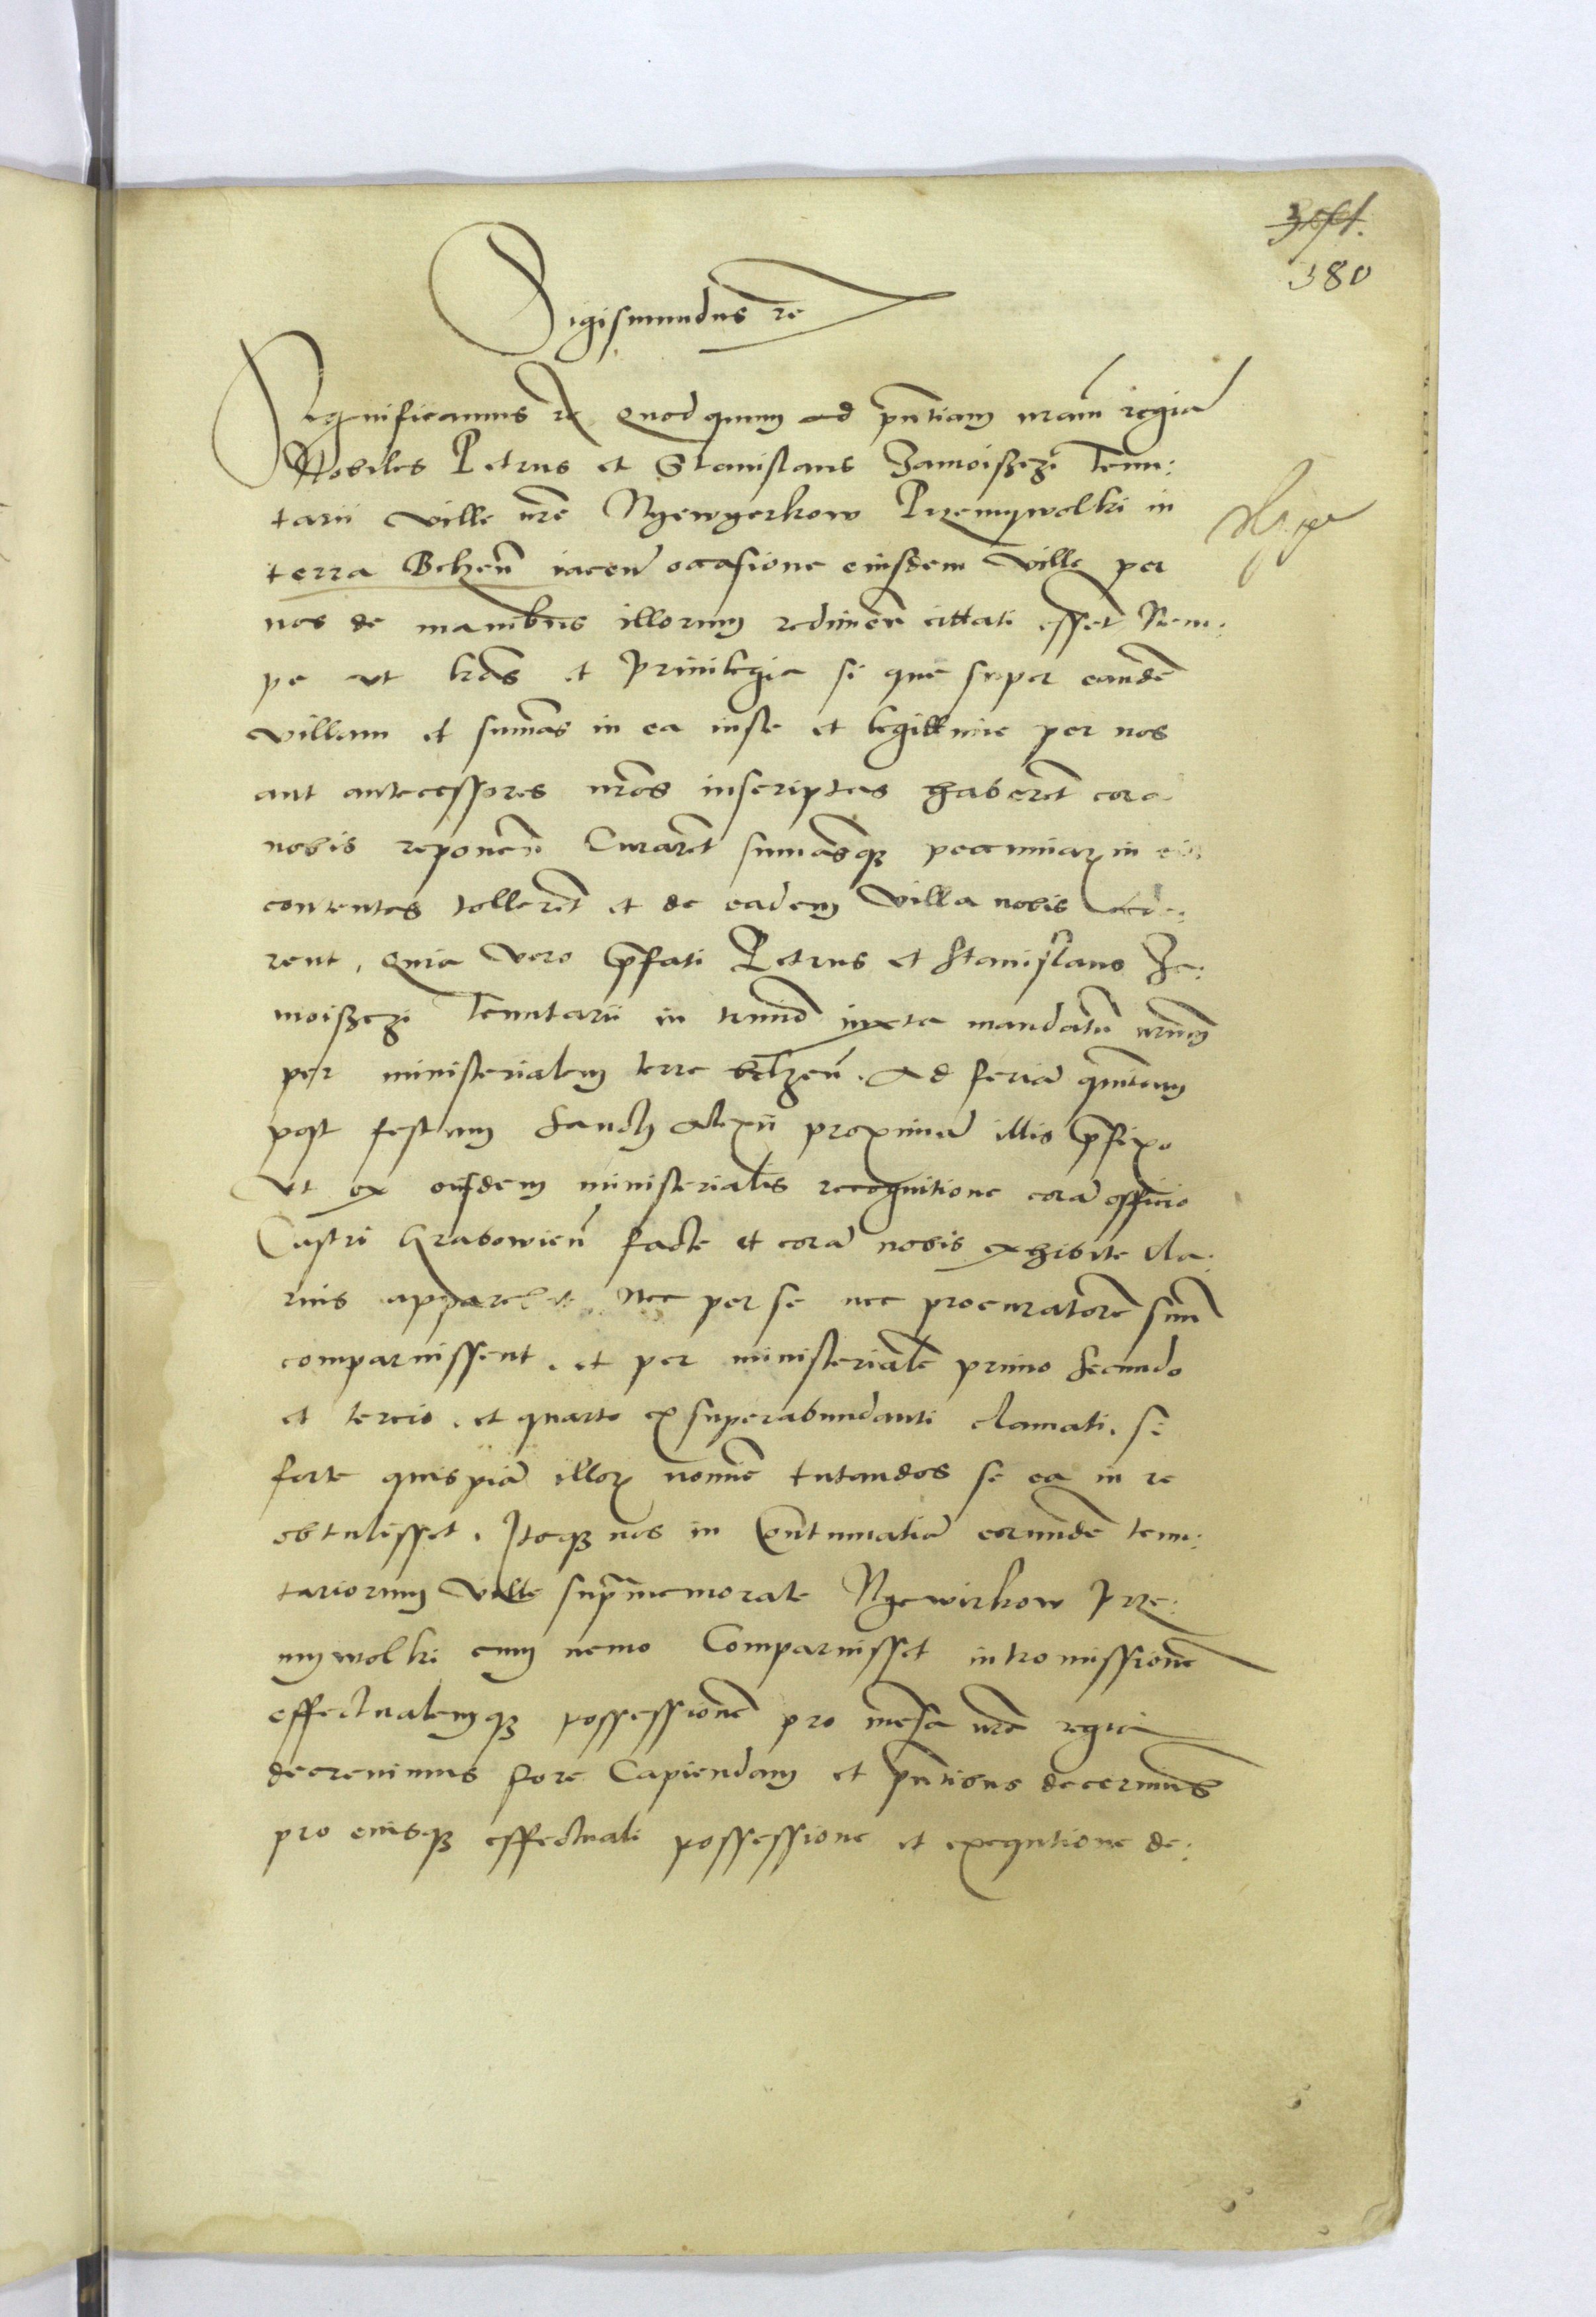 380
Sigismundus rc
Significamus rc Quod quum ad pñtiam nram regiã
Nobiles Petrus et Stanislaus Zamoiszczi Tenu:
tarii ville nrẽ Nyewyerkow Przemywolki in
terra Belzeñ iaceñ occasione eiusdem ville per
nos de manibus illorum redimeñ cittati essẽt Nem:
pe ut lrãs et Privilegia si que super eandẽ
villam et sum̃as in ea iuste et legittime per nos
aut antecessores nros inscriptas haberẽt cora
nobis reponeñ Curarẽt sum̃asqꝫ pecuniaꝝ in eis
contentas tollerẽt et de eadem villa nobis cede:
rent, Quia vero p̃fati Petrus et Stanislaus Za:
moiszczi Tenutarii in termiõ iuxta mandatũ nrum
per ministerialem terre belzeñ. Ad feriã quintam
post festum Sancti Alexii proximã illis p̃fixo
Ut ex eiusdem ministerialis recognitione corã officio
Castri Grabowieñ facte et corã nobis exhibite cla:
rius apparebat Nec per se nec procuratorẽ suũ
comparuissent. et per ministerialẽ primo secundo
et tercio. et quarto ex superabundanti clamati. si
forte quispiã illoꝝ nomiẽ tutandos se ea in re
obtulisset. Itaqꝫ nos in Contumatiã eorundẽ tenu:
tariorum ville supramemorate Nyewirkow Prze:
mywolki cum nemo Comparuisset intromissionẽ
effectualemqꝫ possessionẽ pro mẽsa nrã regia
decrevimus fore Capiendam et pñtibus decernimus
pro eiusqꝫ effectuali possessione et exequtione de: